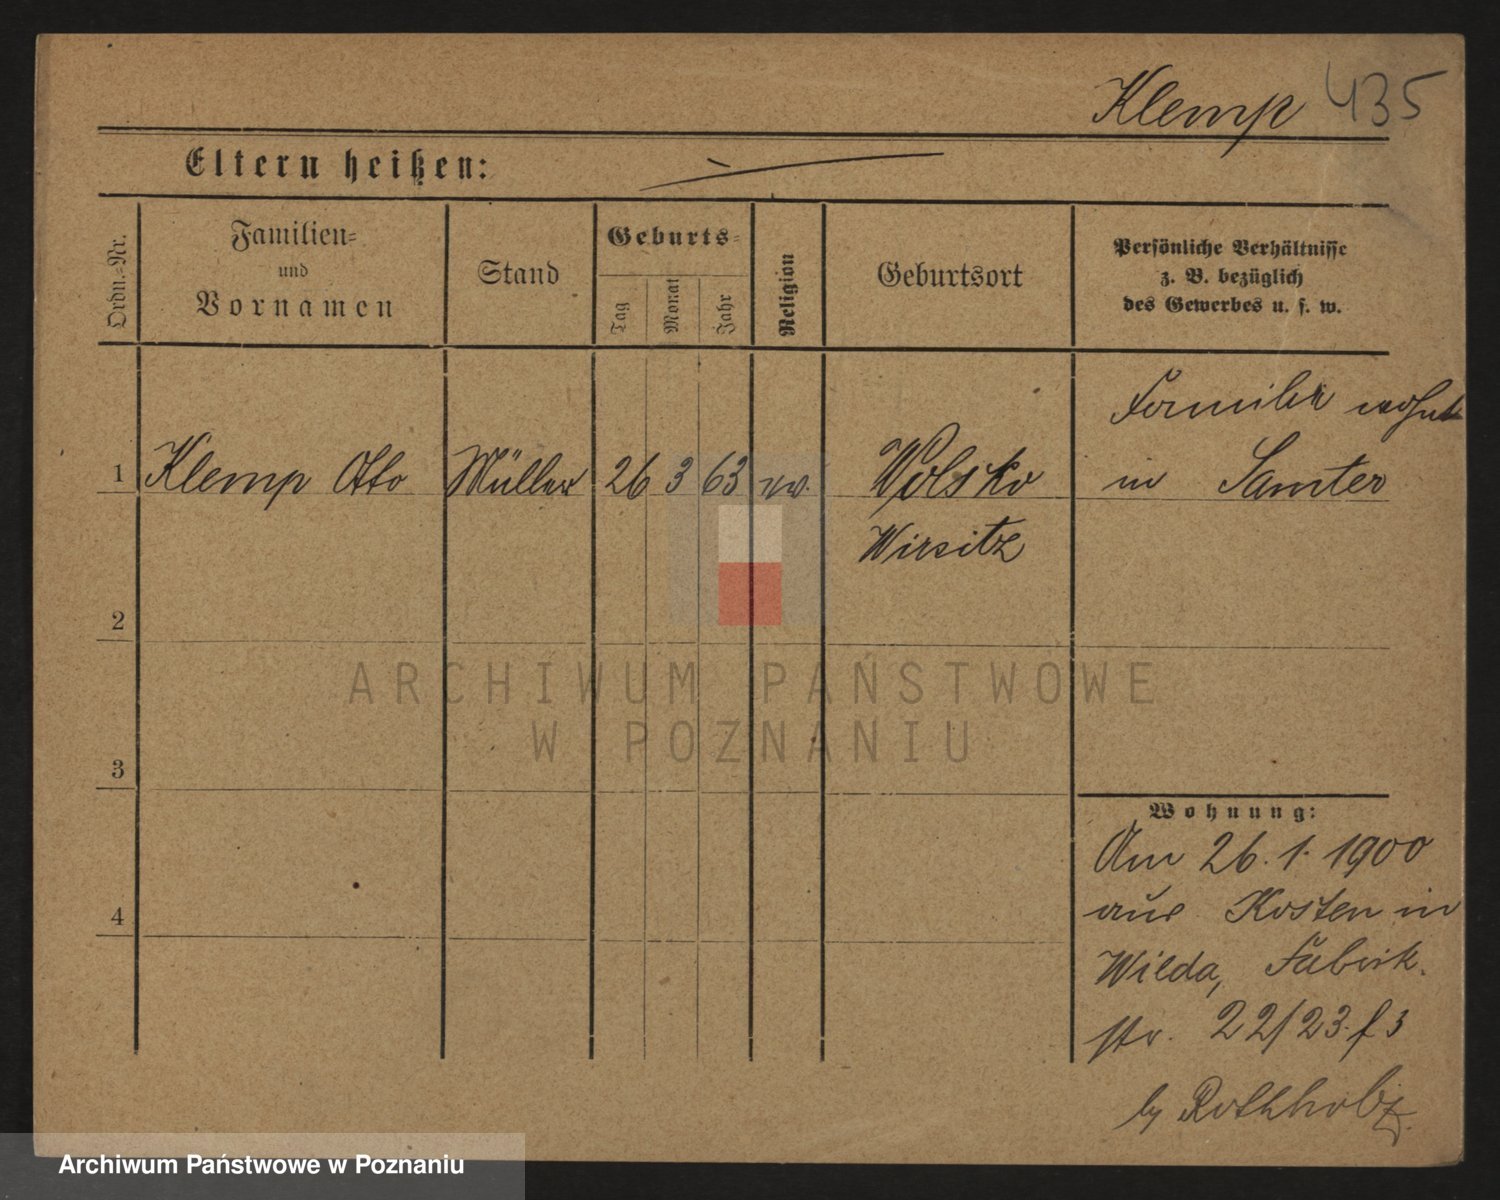 Klemp 435
Eltern heißen:
Ordn.-Nr.
Familien-
und
Vornamen
Stand
Geburts-
Tag
Monat
Jahr
Religion
Geburtsort
Persönliche Verhältnisse
z. B. bezüglich
des Gewerbes u. s. w.
Familie wohnt
1 Klemp Otto Müller 26 3 63 ev. Wolsko in Samter
Wirsitz
2
3
4
Wohnung:
Am 26.1.1900
aus Kosten in
Wilda, Fabrik-
str. 22/23
by Rothholz
ARCHIWUM PAŃSTWOWE
W POZNANIU
Archiwum Państwowe w Poznaniu